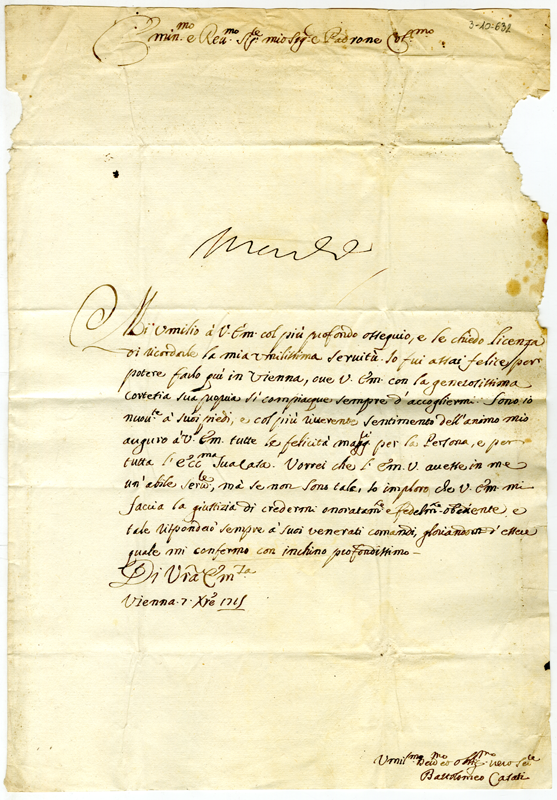 3-10-632
Emin.mo e Rev.mo Sig.re mio Sig.e e Padrone Col.mo
Mi umilio à V. Em. col più profondo ossequio, e le chiedo licenza
di ricordale la mia umilissima servitù. Io fui assai felice per
potere farlo qui in Vienna, oue V. Em. con la generosissima
cortesia sua propria si compiaque sempre d'accogliermi. Sono io
nuou.te à suoi piedi, e col più riuerente sentimento dell'animo mio
auguro à V. Em. tutte le felicità magg.ri per la Persona, e per
tutta l'Ecc.ma Sua Casa. Vorrei che l'Em. V. auesse in me
un'abile Seru.le, mà se non sono tale, io imploro che V. Em. mi
faccia la giustizia di credermi onoratam.te e fedelm.te obediente e
tale risponderò sempre à suoi venerati comandi, gloriandomi d'essere
quale mi confermo con inchino profondissimo -
Di Vra Em.za
Vienna 7. Xre 1715
Umil.mo Deuo.mo Obl.mo vero Se.re
Bartolomeo Casati